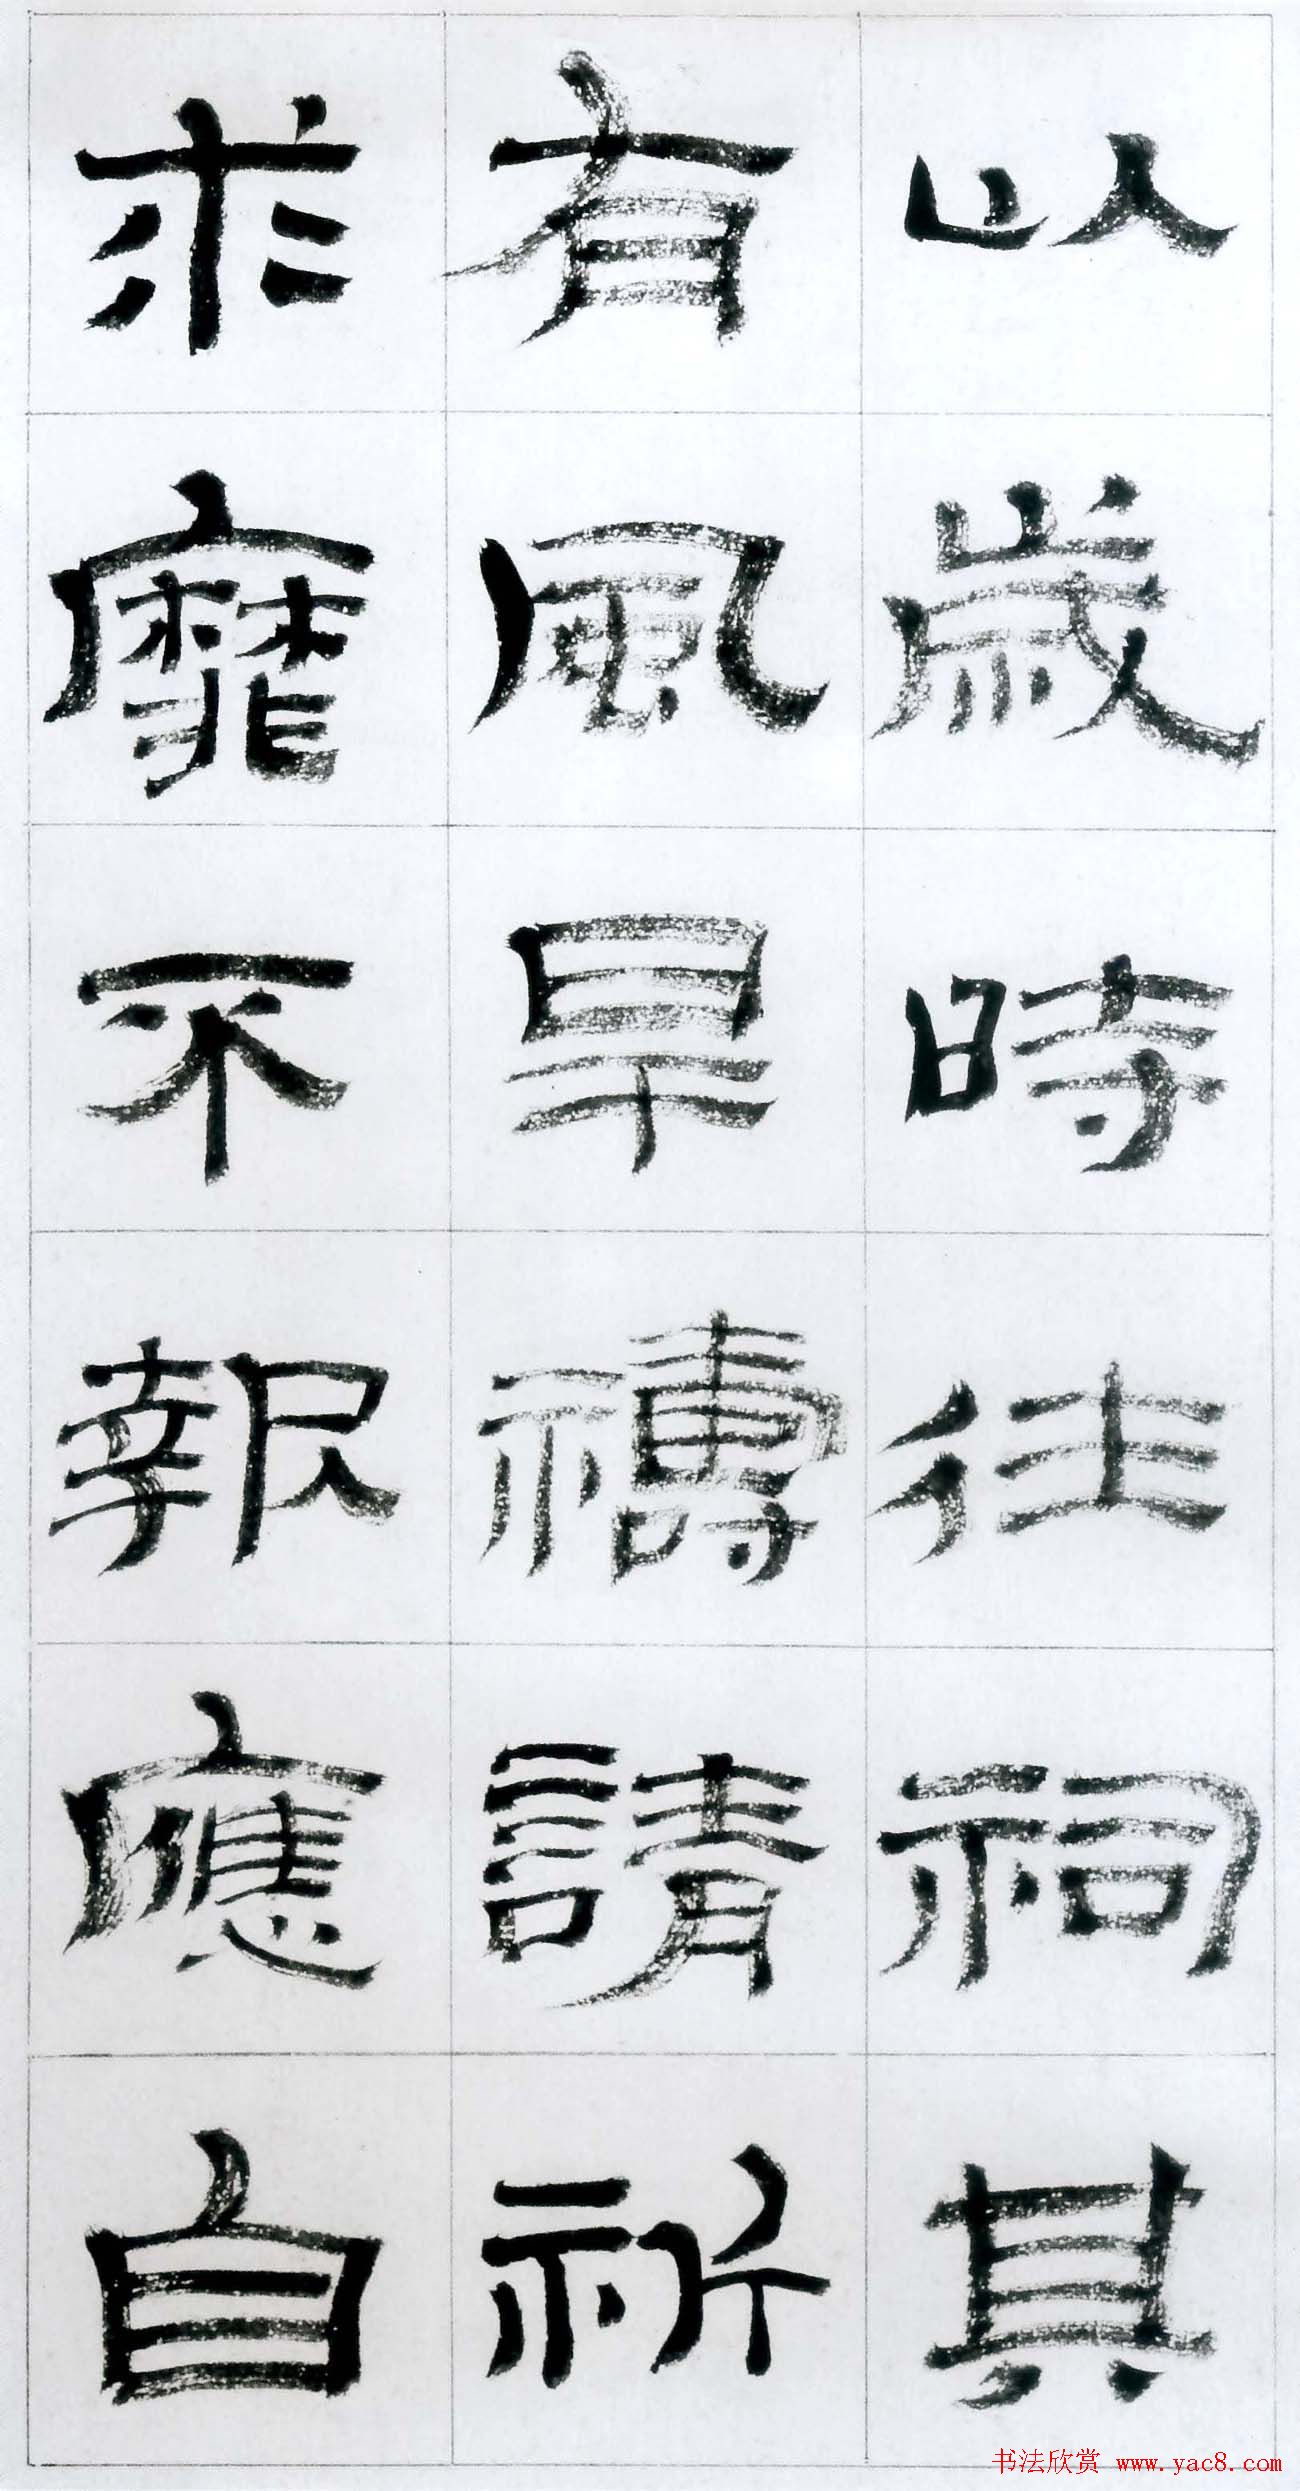 以歲時往祠其
有風旱禱請祈
求靡不報應自
书法欣赏 www.yac8.com